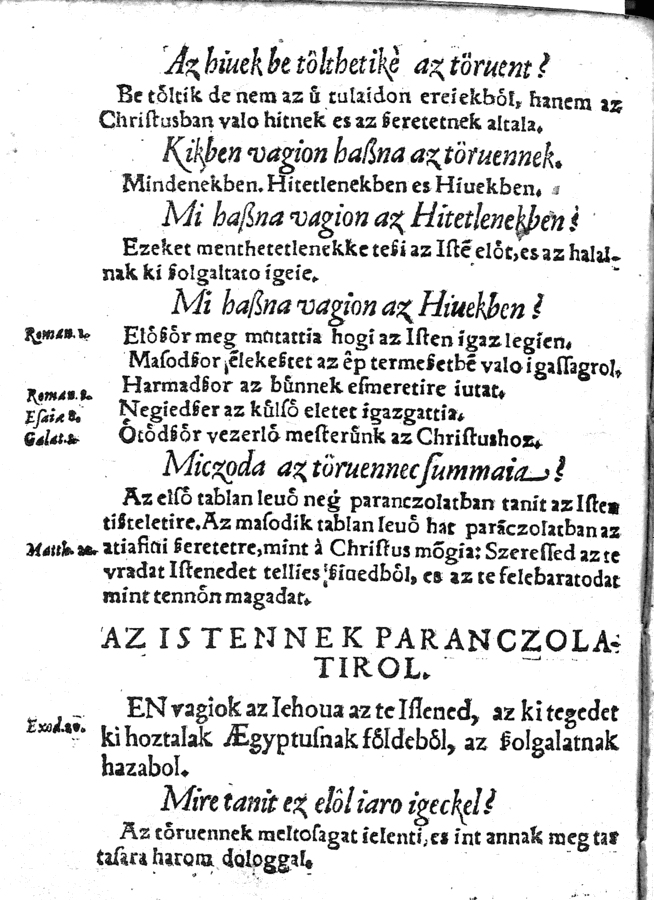 Az hiuek be tôlthetikè az töruent?
Be tỏltik de nem az ủ tulaidon ereiekbỏl, hanem az
Chriſtusban valo hitnek es az ßeretetnek altala.
Kikben vagion haßna az töruennek.
Mindenekben. Hitetlenekben es Hiuekben.
Mi haßna vagion az Hitetlenekben?
Ezeket menthetetlenekke teßi az Iſtẽ elỏt, es az halal-
nak ki ßolgaltato igeie.
Mi haßna vagion az Hiuekben?
Roman.
Elỏßỏr meg mutattia hogi az Iſten igaz legien.
Maſodßor élekeßtet az êp termeßetbẽ valo igaſſagrol.
Harmadßor az bủnnek eſmeretire iutat.
Roman. 8.
Negiedßer az kủlſỏ eletet igazgattia.
Eſaiæ 8.
Ỏtỏdßỏr vezerlỏ meſterủnk az Chriſtushoz.
Galat.
Miczoda az töruennec ſummaia?
Az elſỏ tablan leuỏ neǵ paranczolatban tanit az Iſten
tißteletire. Az maſodik tablan leuỏ hat parãczolatban az
Matth.
atiafiui ßeretetre, mint à Chriſtus mõgia: Szereſſed az te
vradat Iſtenedet tellies ßiuedbỏl, es az te felebaratodat
mint tennỏn magadat.
AZ ISTENNEK PARANCZOLA-
TIROL.
EN vagiok az Iehoua az te Iſtened, az ki tegedet
Exod. 20.
ki hoztalak Ægyptuſnak fỏldebỏl, az ßolgalatnak
hazabol.
Mire tanit ez elôl iaro igeckel?
Az tỏruennek meltoſagat ielenti, es int annak meg tar
taſara harom dologgal.